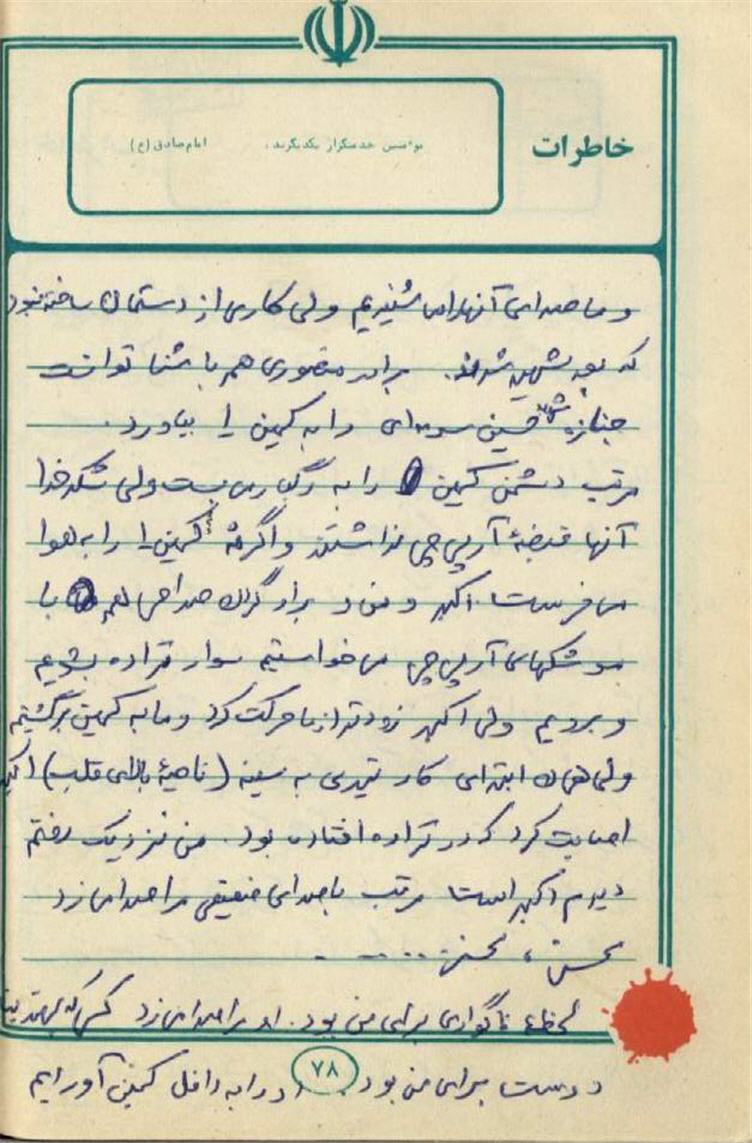 خاطرات
مؤمنین خدمتگزار یکدیگرند. امام صادق (ع)
و ما صدای آنها را می شنیدیم ولی کاری از دستمان ساخته نبود
که بعد شهید شدند. برادر منصوری هم با شنا توانست
جنازه شهید حسین را به کمین ۱ بیاورد.
مرتب دشمن کمین را به رگبار می بست ولی شکر خدا
آنها قبضهٔ آرپی چی نداشتند و اگر نه کمین ۱ را به هوا
می فرستاد. اکبر و من و برادر هم با
موشکهای آرپی چی می خواستیم سوار قراده بشویم
و برویم ولی اکبر زودتر از ما حرکت کرد و ما به کمین برگشتیم
ولی همان ابتدای کار تیری به سینه (ناحیهٔ بالای قلب) اکبر
اصابت کرد که در قراده افتاده بود. من نزدیک رفتم
دیدم اکبر است مرتب با صدای ضعیفی مرا صدا می زد
محسن، محسن . . . . .
لحظهٔ ناگواری برای من بود. او مرا صدا می زد کسی که بهترین
دوست برای من بود. او را به داخل کمین آوردیم
۷۸